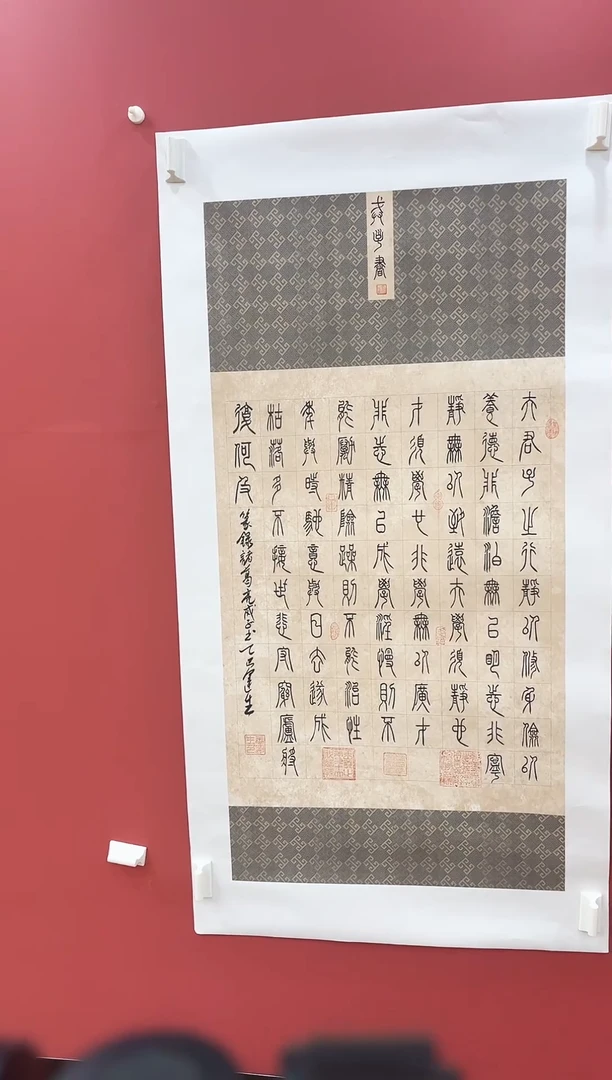 戒子書
夫君子之行靜以修身儉以
養德非澹泊無以明志非寧
靜無以致遠夫學須靜也
才須學也非學無以廣才
非志無以成學淫慢則不
能勵精險躁則不能治性
年與時馳意與日去遂成
枯落多不接世悲守窮廬將
復何及
篆録諸葛亮戒子书乙巳建生